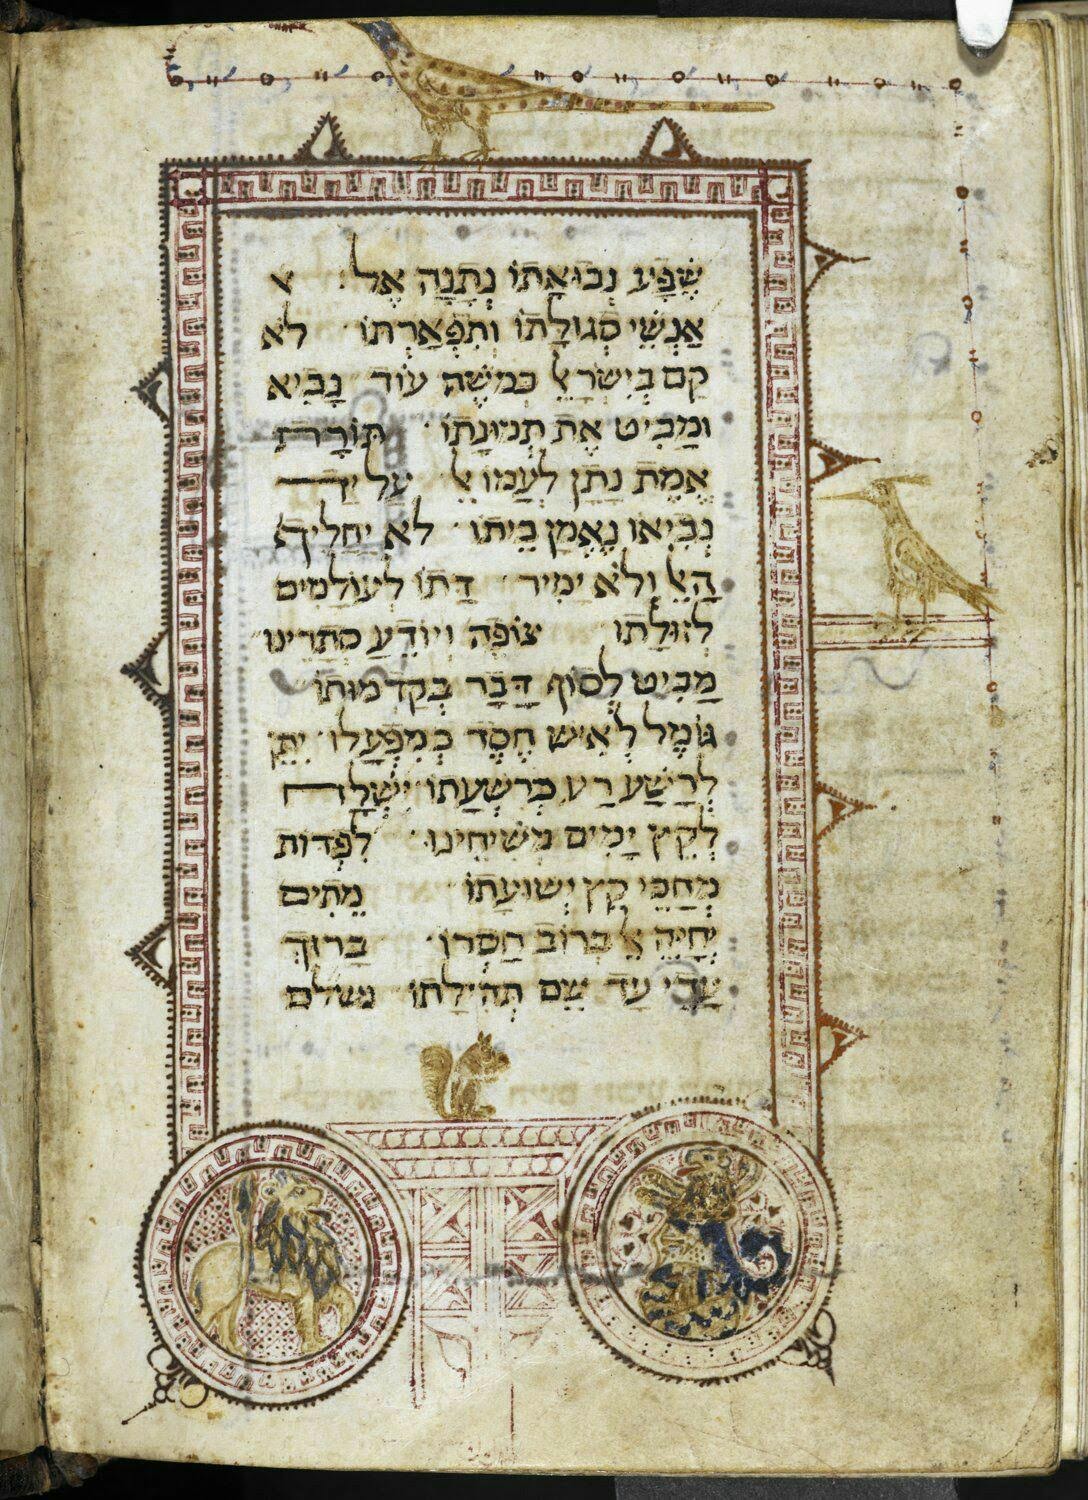 שֶׁפַע נְבוּאָתוֹ נְתָנָהּ אֶל
אַנְשֵׁי סְגוּלָתוֹ וְתִפְאַרְתּוֹ לֹא
קָם בְּיִשְׂרָאֵל כְּמשֶׁה עוֹד נָבִיא
וּמַבִּיט אֶת תְּמוּנָתוֹ תּוֹרַת
אֱמֶת נָתַן לְעַמּוֹ אֵל עַל יַד
נְבִיאוֹ נֶאֱמַן בֵּיתוֹ לֹא יַחֲלִיף
הָאֵל וְלֹא יָמִיר דָּתוֹ לְעוֹלָמִים
לְזוּלָתוֹ צוֹפֶה וְיוֹדֵעַ סְתָרֵינוּ
מַבִּיט לְסוֹף דָּבָר בְּקַדְמוּתוֹ
גּוֹמֵל לְאִישׁ חֶסֶד כְּמִפְעָלוֹ יִתֵּן
לְרָשָׁע רַע כְּרִשְׁעָתוֹ יִשְׁלַח
לְקֵץ יָמִים מְשִׁיחֵינוּ לִפְדּוֹת
מְחַכֵּי קֵץ יְשׁוּעָתוֹ מֵתִים
יְחַיֶּה אֵל בְּרוֹב חַסְדּוֹ בָּרוּךְ
עֲדֵי עַד שֵׁם תְּהִלָּתוֹ נשלם